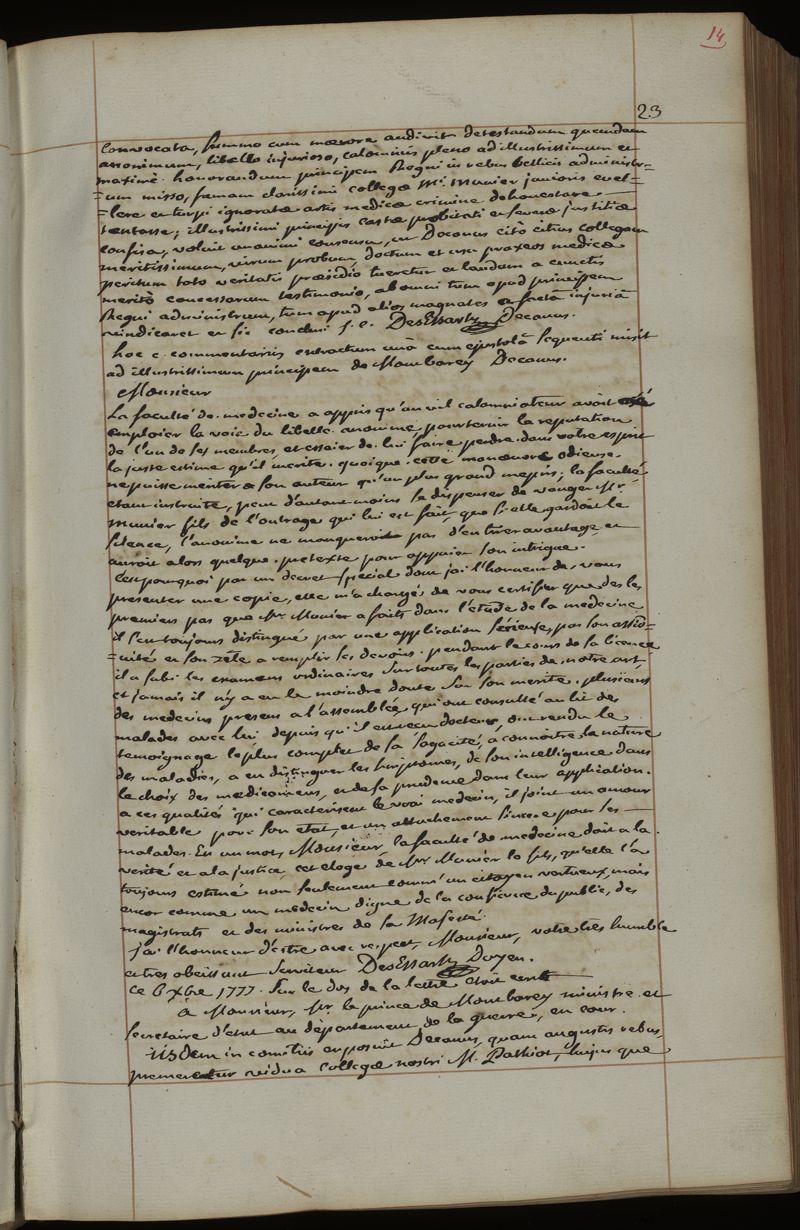 14
23
Convocata, summo cum mœrore audivit detestandum quemdam
anonimum, libello injurioso, calomniis pleno ad illustrissimum et
maxime honorandum principem Regni in rebus bellicis administr=
=um misso, famam clarissimi collegæ Mi. Munier junioris evel=
=lere et turpi ignoratæ artis medicæ crimine dehonestare
tentasse; illustrissimi principis castæ probitati et severæ justitiæ
confisa, voluit unanimi consensu, ut Decanus citò citius collegam
meritissimum, virum probum, doctum et usu praxeos medicæ
peritum toto veritatis præsidio tueretur et laudem a cunctis
meritò concessarum testimonio, ab omni tum apud principem
Regni administrum, tum apud alios magnates a factâ injuriâ
vindicaret et sic conclusi s. e. DesEssartz Decanus.
hoc e commentariis extractum unà cum epistolâ sequenti misit
ad illustrissimum principem de Monbarey Decanus.
Monsieur
La faculté de medecine a appris qu'un vil calomniateur avoit osé
emploier la voie du libelle anonime pour ternir la reputation
de l'un de ses membres, et essaier de lui faire perdre dans votre esprit
la juste estime qu'il merite. quoique cette manœuvre odieuse
ne puisse meriter a son auteur qu'un plus grand mepris, la faculté
etant instruite, peut d'autant moins se dispenser de vanger Mr.
Munier fils de l'outrage qui lui est fait, que si elle gardoit le
silence, l'anonime ne manqueroit pas d'en tirer avantage, et
auroit alors quelque pretexte pour appuier son intrigue.
C'est pourquoi par un decret special dont j'ai l'honneur de vous
presenter une copie, elle m'a chargé de vous certifier que des les
premiers pas que Mr. Munier a faits dans l'etude de la medecine
il s'est toujours distingué par une application serieuse, par son assid=
=uité et son zêle a remplir ses devoirs. pendant le cours de sa licence
il a subi les examens ordinaires sur toutes les parties de notre art,
et jamais il n'y a eu la moindre doute sur son merite. plusieurs
des medecins presens a l'assemblée qui ont consulté au lit des
malades avec lui depuis qu'il est reçu docteur, ont rendu le
temoignage le plus complet de sa sagacité, a connoitre la nature
des maladies, a en distinguer les simptomes, de son intelligence dans
le choix des medicamens, et de sa prudence dans leur application.
a ces qualités qui caracterisent le vrai medecin, il joint un amour
veritable pour son etat, et un attachement sincere pour les
malades. En un mot, Monsieur, la faculté de medecine doit a la
verité et a la justice cet eloge de Mr. Munier le fils, qu'elle l'a
toujours estimé non seulement comm'un citoyen vertueux, mais
encor comme un medecin digne de la confience du public, des
magistrats et des ministres de sa Majesté.
j'ai l'honneur d'estre avec respect, Monsieur, votre très humble
et très obeissant serviteur DesEssartz Doyen.
Ce 6 xbre 1777. Sur le dos de la lettre etoit ecrit
à Monsieur, Mr. le prince de Monbarey ministre et
secretaire d'etat au département de la guerre, en cour.
iisdem in comitiis exposuit Decanus, quam angustis rebus
premeretur vidua collegæ nostri M. Pathiot, hujus que